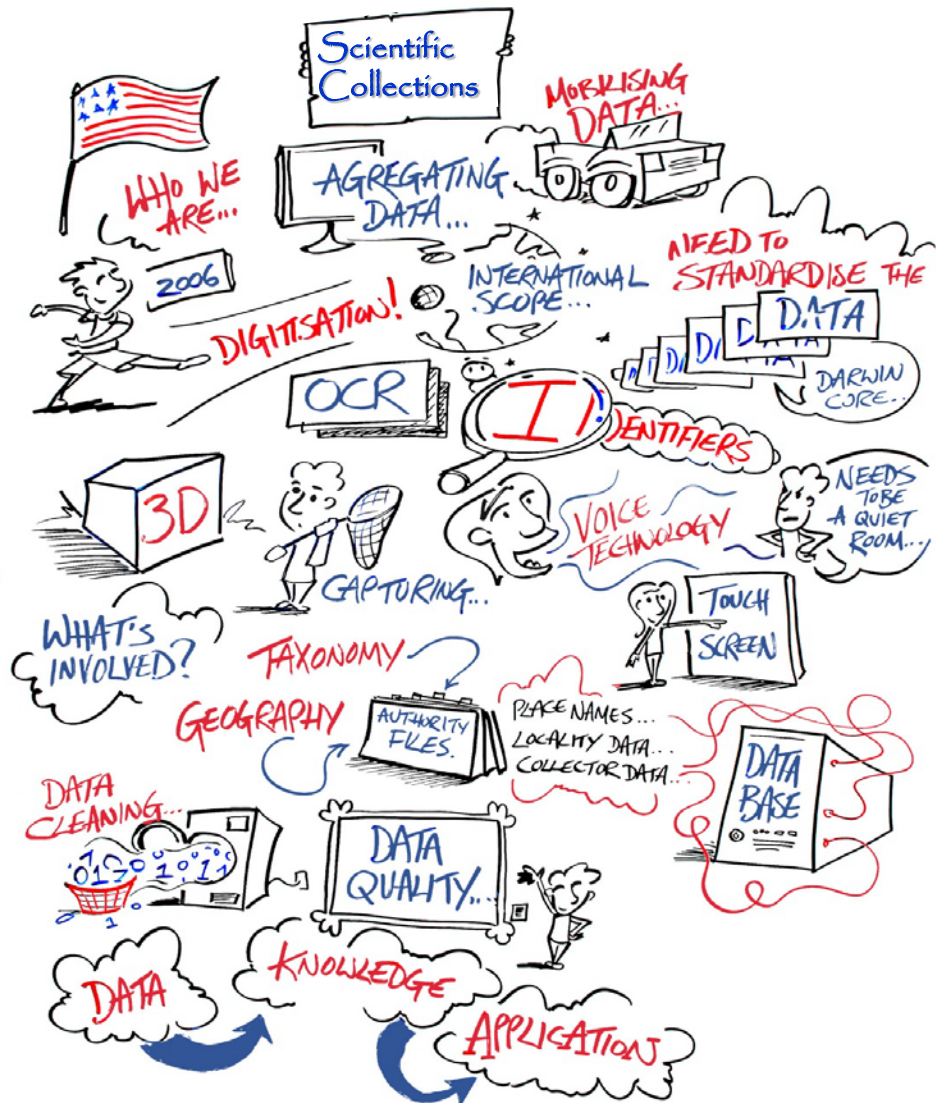 Scientific
Collections
MOBILISING
DATA...
WHO WE
ARE...
AGREGATING
DATA...
2006
DIGITISATION!
INTERNATIONAL
SCOPE...
NEED TO
STANDARDISE THE
DATA
DARWIN
CORE..
OCR
I
IDENTIFIERS
3D
CAPTURING...
VOICE
TECHNOLOGY
NEEDS
TO BE
A QUIET
ROOM...
TOUCH
SCREEN
WHAT'S
INVOLVED?
TAXONOMY
GEOGRAPHY
AUTHORITY
FILES.
PLACE NAMES...
LOCALITY DATA...
COLLECTOR DATA...
DATA
BASE
DATA
CLEANING...
DATA
QUALITY...
DATA
KNOWLEDGE
APPLICATION